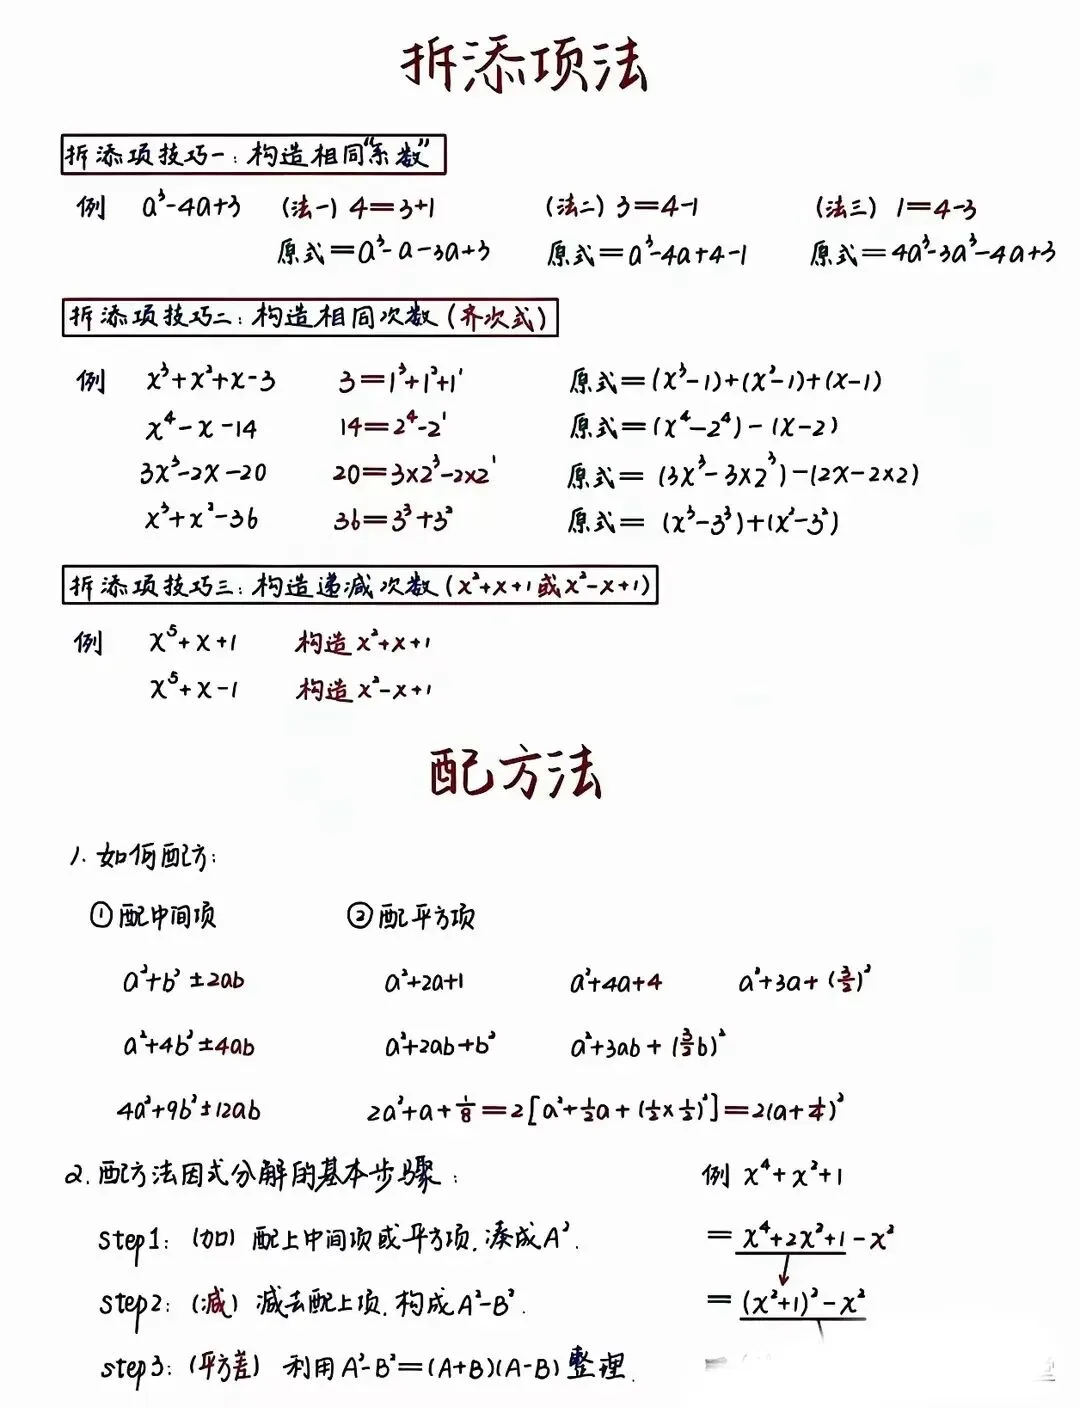 拆添项法
拆添项技巧一：构造相同“系数”
例 a³-4a+3 (法一) 4=3+1 (法二) 3=4-1 (法三) 1=4-3
原式=a³-a-3a+3 原式=a³-4a+4-1 原式=4a³-3a³-4a+3
拆添项技巧二：构造相同次数(齐次式)
例 x³+x²+x-3 3=1³+1²+1¹ 原式=(x³-1)+(x²-1)+(x-1)
x⁴-x-14 14=2⁴-2¹ 原式=(x⁴-2⁴)-(x-2)
3x³-2x-20 20=3×2³-2×2¹ 原式=(3x³-3×2³)-(2x-2×2)
x³+x²-36 36=3³+3² 原式=(x³-3³)+(x²-3²)
拆添项技巧三：构造递减次数(x²+x+1或x²-x+1)
例 x⁵+x+1 构造x²+x+1
x⁵+x-1 构造x²-x+1
配方法
1. 如何配方：
①配中间项 ②配平方项
a²+b²±2ab a²+2a+1 a²+4a+4 a²+3a+(3/2)²
a²+4b²±4ab a²+2ab+b² a²+3ab+(3/2b)²
4a²+9b²±12ab 2a²+a+1/8=2[a²+1/2a+(1/2×1/2)²]=2(a+1/4)²
2. 配方法因式分解的基本步骤： 例 x⁴+x²+1
step1: (加) 配上中间项或平方项,凑成A². =x⁴+2x²+1-x²
step2: (减) 减去配上项,构成A²-B². =(x²+1)²-x²
step3: (平方差) 利用A²-B²=(A+B)(A-B)整理.